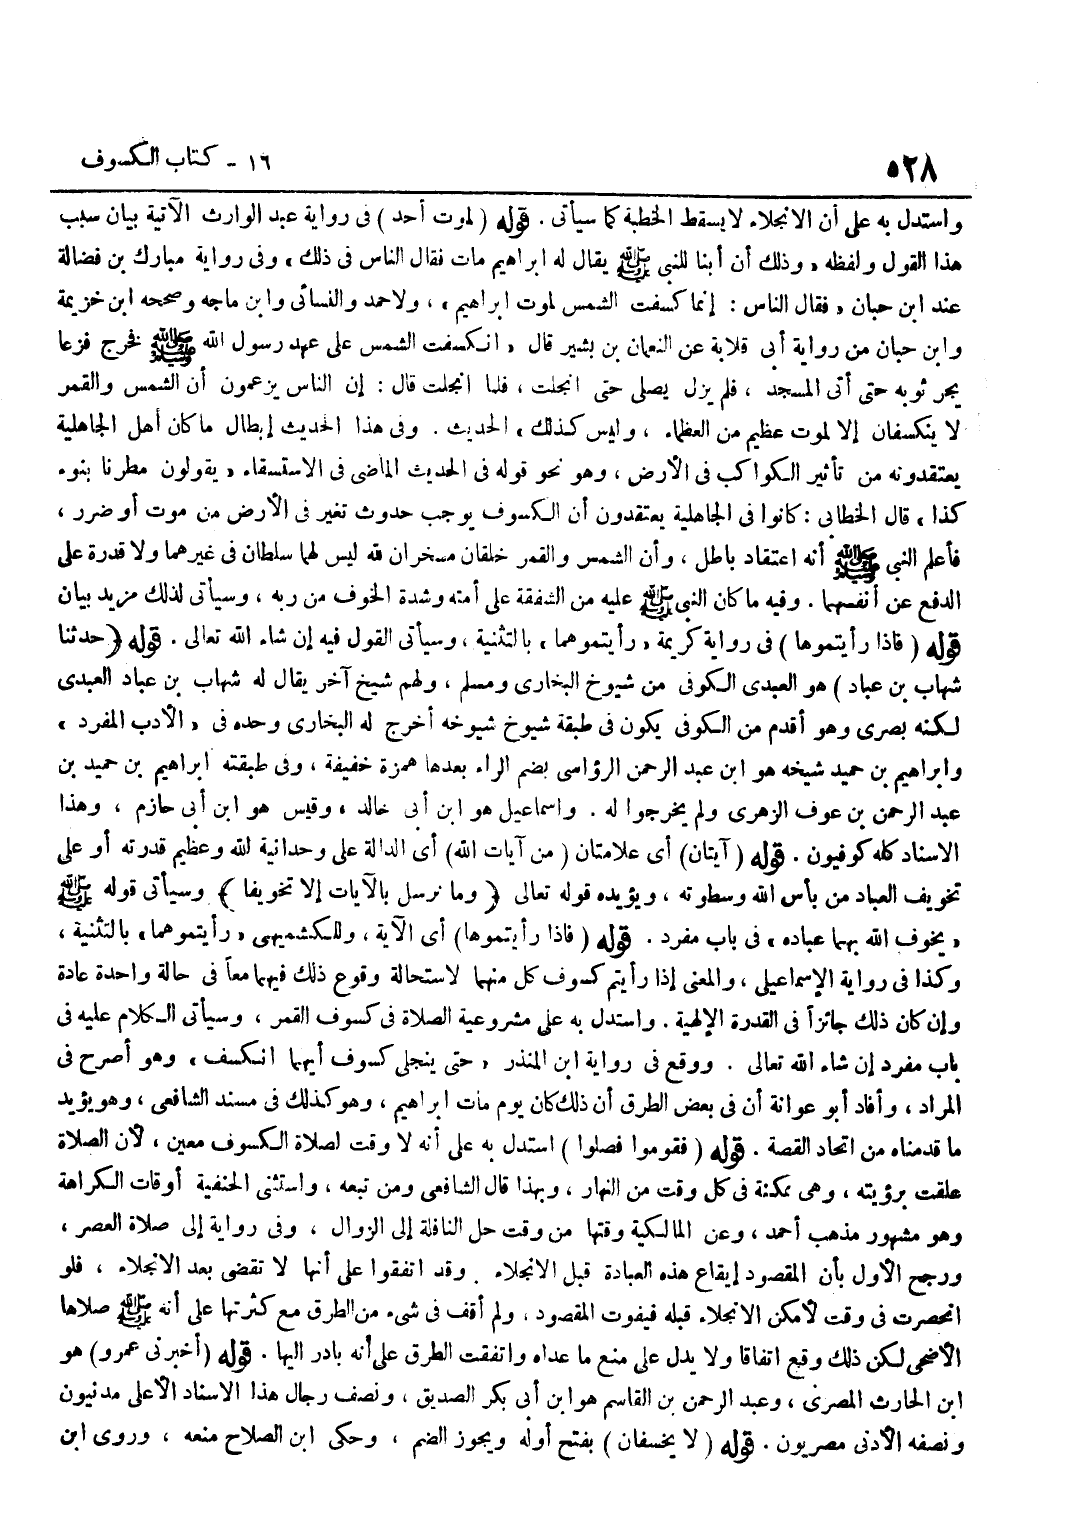 ٥٢٨
١٦ - كتاب الكسوف
واستدل به على أن الانجلاء لا يسقط الخطبة كما سيأتى . قوله ( لموت أحد ) فى رواية عبد الوارث الآتية بيان سبب
هذا القول ولفظه « وذلك أن أبنا للنبى ﷺ يقال له ابراهيم مات فقال الناس فى ذلك » وفى رواية مبارك بن فضالة
عند ابن حبان « فقال الناس : إنما كسفت الشمس لموت ابراهيم » ، ولاحمد والنسائى وابن ماجه وصححه ابن خزيمة
وابن حبان من رواية أبى قلابة عن النعمان بن بشير قال « انكسفت الشمس على عهد رسول الله ﷺ فخرج فزعا
يجر ثوبه حتى أتى المسجد ، فلم يزل يصلى حتى انجلت ، فلما انجلت قال : إن الناس يزعمون أن الشمس والقمر
لا ينكسفان إلا لموت عظيم من العظماء ، وليس كذلك » الحديث . وفى هذا الحديث إبطال ما كان أهل الجاهلية
يعتقدونه من تأثير الكواكب فى الأرض ، وهو نحو قوله فى الحديث الماضى فى الاستسقاء « يقولون مطرنا بنوء
كذا » قال الخطابى : كانوا فى الجاهلية يعتقدون أن الكسوف يوجب حدوث تغير فى الأرض من موت أو ضرر ،
فأعلم النبى ﷺ أنه اعتقاد باطل ، وأن الشمس والقمر خلقان مسخران لله ليس لهما سلطان فى غيرهما ولا قدرة على
الدفع عن أنفسهما . وفيه ما كان النبى ﷺ عليه من الشفقة على أمته وشدة الخوف من ربه ، وسيأتى لذلك مزيد بيان
قوله ( فاذا رأيتموها ) فى رواية كريمة « رأيتموهما » بالتثنية ، وسيأتى القول فيه إن شاء الله تعالى . قوله ( حدثنا
شهاب بن عباد ) هو العبدى الكوفى من شيوخ البخارى ومسلم ، ولهم شيخ آخر يقال له شهاب بن عباد العبدى
لكنه بصرى وهو أقدم من الكوفى يكون فى طبقة شيوخ شيوخه أخرج له البخارى وحده فى « الأدب المفرد »
وابراهيم بن حميد شيخه هو ابن عبد الرحمن الرؤاسى بضم الراء بعدها همزة خفيفة ، وفى طبقته ابراهيم بن حميد بن
عبد الرحمن بن عوف الزهرى ولم يخرجوا له . واسماعيل هو ابن أبى خالد ، وقيس هو ابن أبى حازم ، وهذا
الاسناد كله كوفيون . قوله ( آيتان ) أى علامتان ( من آيات الله ) أى الدالة على وحدانية الله وعظيم قدرته أو على
تخويف العباد من بأس الله وسطوته ، ويؤيده قوله تعالى ﴿ وما نرسل بالآيات إلا تخويفا ﴾ وسيأتى قوله ﷺ
« يخوف الله بهما عباده » فى باب مفرد . قوله ( فاذا رأيتموها ) أى الآية ، وللكشميهنى « رأيتموهما » بالتثنية ،
وكذا فى رواية الإسماعيلى ، والمعنى إذا رأيتم كسوف كل منهما لاستحالة وقوع ذلك فيهما معاً فى حالة واحدة عادة
وإن كان ذلك جائزاً فى القدرة الإلهية . واستدل به على مشروعية الصلاة فى كسوف القمر ، وسيأتى الكلام عليه فى
باب مفرد إن شاء الله تعالى . ووقع فى رواية ابن المنذر « حتى ينجلى كسوف أيهما انكسف » وهو أصرح فى
المراد ، وأفاد أبو عوانة أن فى بعض الطرق أن ذلك كان يوم مات ابراهيم ، وهو كذلك فى مسند الشافعى ، وهو يؤيد
ما قدمناه من اتحاد القصة . قوله ( فقوموا فصلوا ) استدل به على أنه لا وقت لصلاة الكسوف معين ، لأن الصلاة
علقت برؤيته ، وهى ممكنة فى كل وقت من النهار ، وبهذا قال الشافعى ومن تبعه ، واستثنى الحنفية أوقات الكراهة
وهو مشهور مذهب أحمد ، وعن المالكية وقتها من وقت حل النافلة إلى الزوال ، وفى رواية إلى صلاة العصر ،
ورجح الأول بأن المقصود إيقاع هذه العبادة قبل الانجلاء . وقد اتفقوا على أنها لا تقضى بعد الانجلاء ، فلو
انحصرت فى وقت لأمكن الانجلاء قبله فيفوت المقصود ، ولم أقف فى شىء من الطرق مع كثرتها على أنه ﷺ صلاها
الأضحى لكن ذلك وقع اتفاقا ولا يدل على منع ما عداه واتفقت الطرق على أنه بادر اليها . قوله ( أخبرنى عمرو ) هو
ابن الحارث المصرى ، وعبد الرحمن بن القاسم هو ابن أبى بكر الصديق ، ونصف رجال هذا الاسناد الأعلى مدنيون
ونصفه الأدنى مصريون . قوله ( لا يخسفان ) بفتح أوله ويجوز الضم ، وحكى ابن الصلاح منعه ، وروى ابن